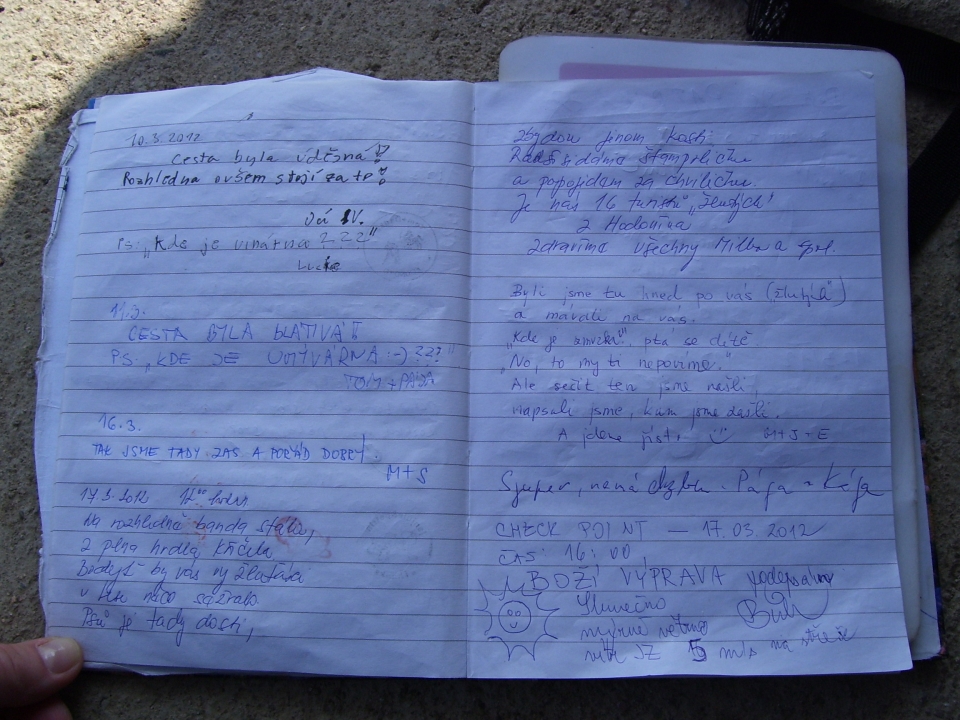 10.3.2012
Cesta byla úděsná!
Rozhledna ovšem stojí za to!
IV.
PS: „Kde je vinárna ???"
Lucie
11.3.
CESTA BYLA BLÁTIVÁ!!
PS: „KDE JE UMÝVÁRNA :-) ???"
TOM + PÁJA
16.3.
TAK JSME TADY ZAS A POŘÁD DOBRÝ!
M+S
17.3.2012 12⁰⁰ hodin
Na rozhledně banda stála,
z plna hrdla křičela
by vás vy žluťáci
v něco sežralo
Psů je tady dosti,
jinam kosti
štamprličku
a popojídem za chviličku.
Je nás 16 turistů „žlutých"
z Hodonína
zdravíme všechny Milka a spol.
Byli jsme tu hned po vás („žlutých")
a mávali na vás.
„Kde je", ptá se dítě.
„No, to my ti nepovíme."
Ale sešit ten jsme našli
napsali jsme, kam jsme došli.
A jdeme jíst. M+J+E
Sjuper, nemá chybu. Pája + Kája
CHECK POINT — 17.03.2012
ČAS: 16:00,
BOŽÍ VÝPRAVA
Slunečno
mírně větrno
vítr JZ 5 m/s na střeše